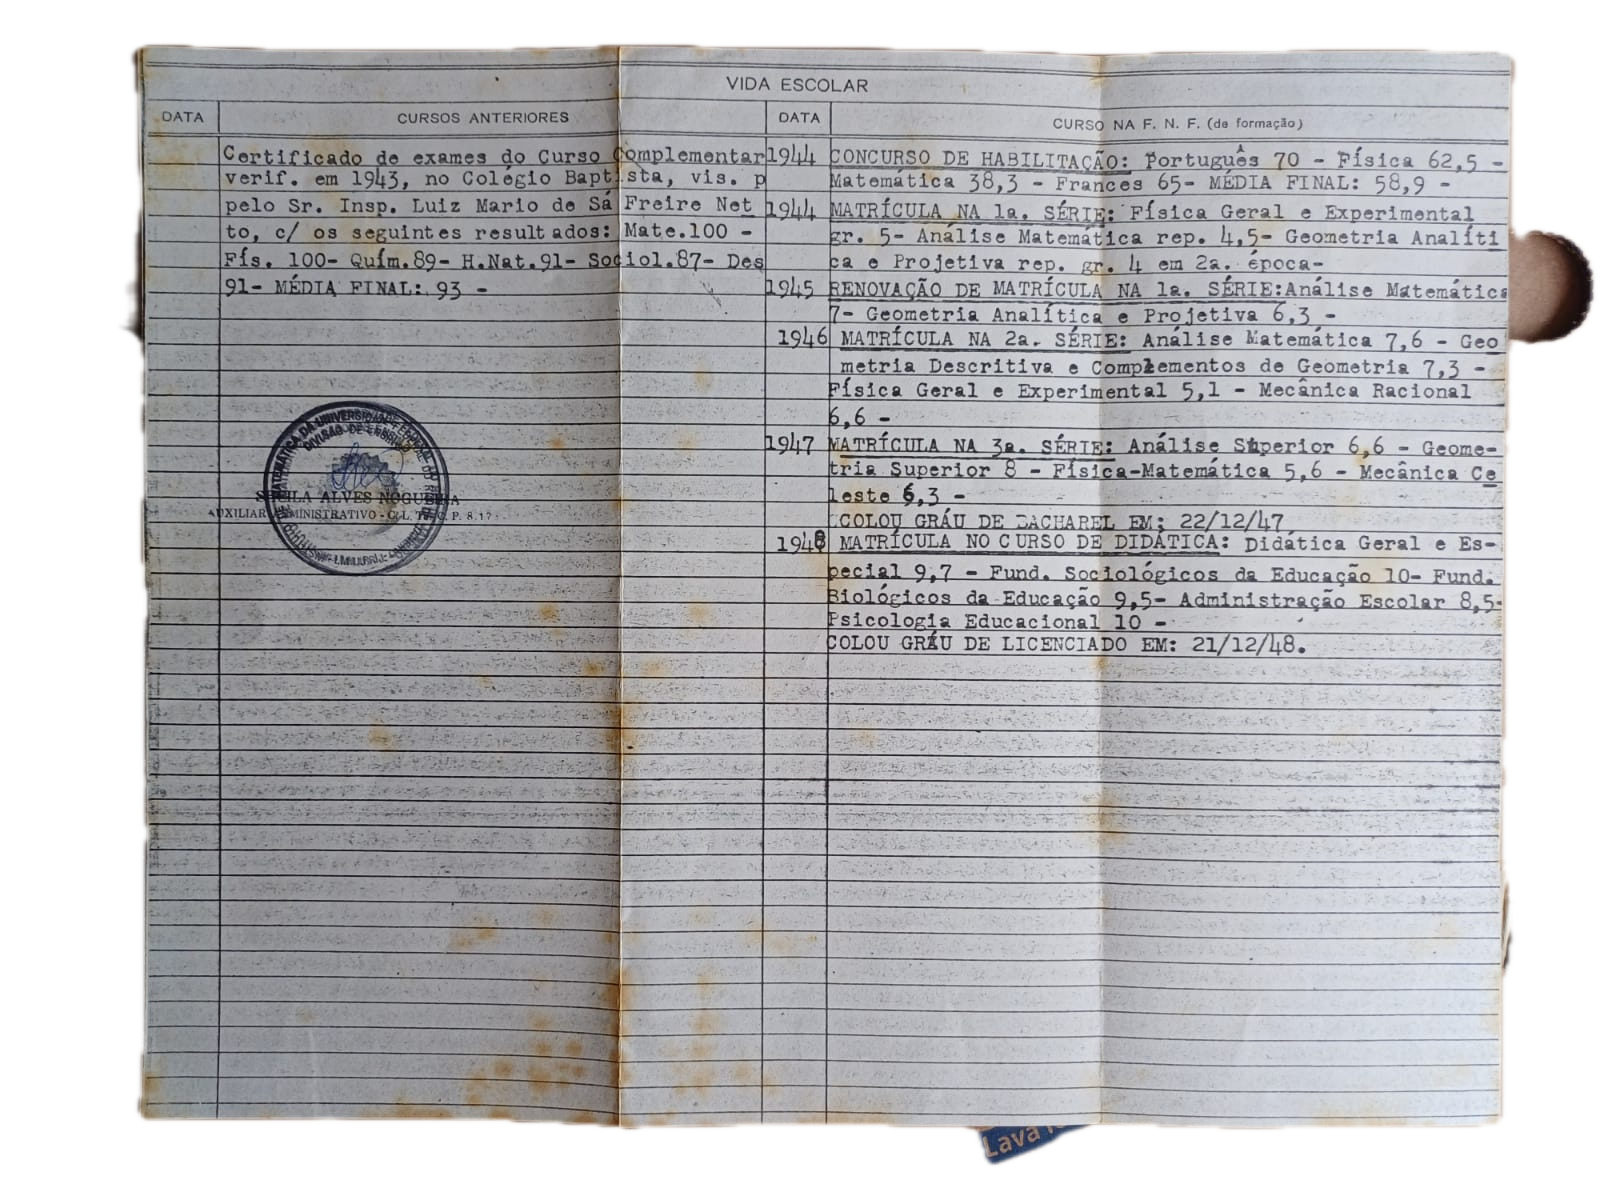 VIDA ESCOLAR
DATA
CURSOS ANTERIORES
Certificado de exames do Curso Complementar
verif. em 1943, no Colégio Baptista, vis. p
pelo Sr. Insp. Luiz Mario de Sá Freire Net
to, c/ os seguintes resultados: Mate.100 -
Fís. 100- Quím.89- H.Nat.91- Sociol.87- Des
91- MÉDIA FINAL: 93 -
DIVISÃO DE ENSINO
ALVES NOGUEIRA
DATA
CURSO NA F. N. F. (de formação)
1944 CONCURSO DE HABILITAÇÃO: Português 70 - Física 62,5 -
Matemática 38,3 - Frances 65- MÉDIA FINAL: 58,9 -
1944 MATRÍCULA NA 1a. SÉRIE: Física Geral e Experimental
gr. 5- Análise Matemática rep. 4,5- Geometria Analíti
ca e Projetiva rep. gr. 4 em 2a. época-
1945 RENOVAÇÃO DE MATRÍCULA NA 1a. SÉRIE:Análise Matemática
7- Geometria Analítica e Projetiva 6,3 -
1946 MATRÍCULA NA 2a. SÉRIE: Análise Matemática 7,6 - Geo
metria Descritiva e Complementos de Geometria 7,3 -
Física Geral e Experimental 5,1 - Mecânica Racional
6,6 -
1947 MATRÍCULA NA 3a. SÉRIE: Análise Superior 6,6 - Geome-
tria Superior 8 - Física-Matemática 5,6 - Mecânica Ce
leste 6,3 -
COLOU GRÁU DE BACHAREL EM: 22/12/47
1948 MATRÍCULA NO CURSO DE DIDÁTICA: Didática Geral e Es-
pecial 9,7 - Fund. Sociológicos da Educação 10- Fund.
Biológicos da Educação 9,5- Administração Escolar 8,5-
Psicologia Educacional 10 -
COLOU GRÁU DE LICENCIADO EM: 21/12/48.
Lava